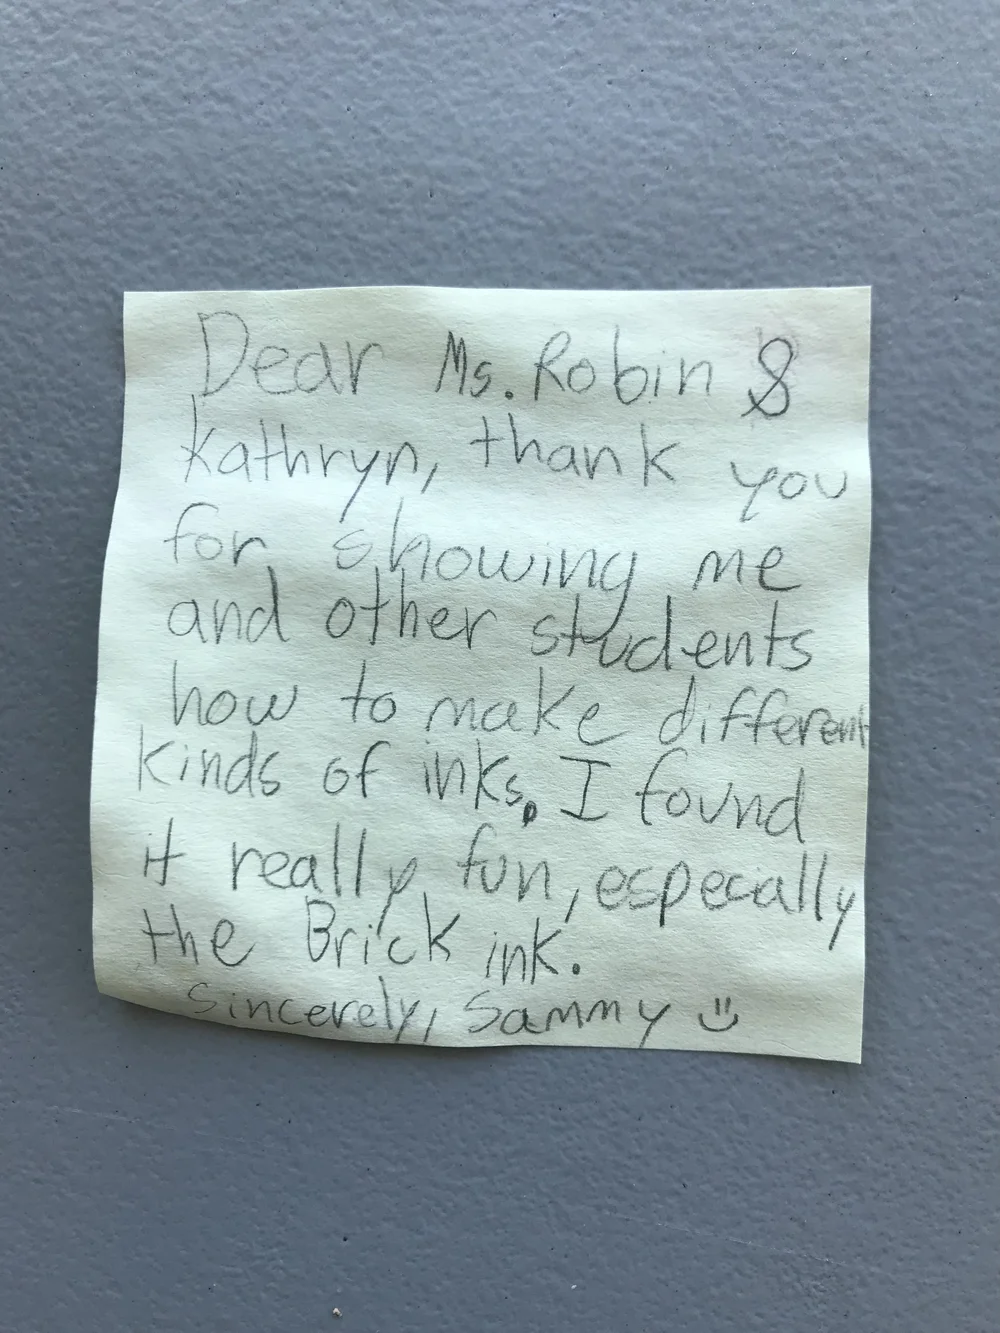 Dear Ms. Robin &
Kathryn, thank you
for showing me
and other students
how to make different
kinds of inks. I found
it really fun, especially
the Brick ink.
Sincerely, Sammy